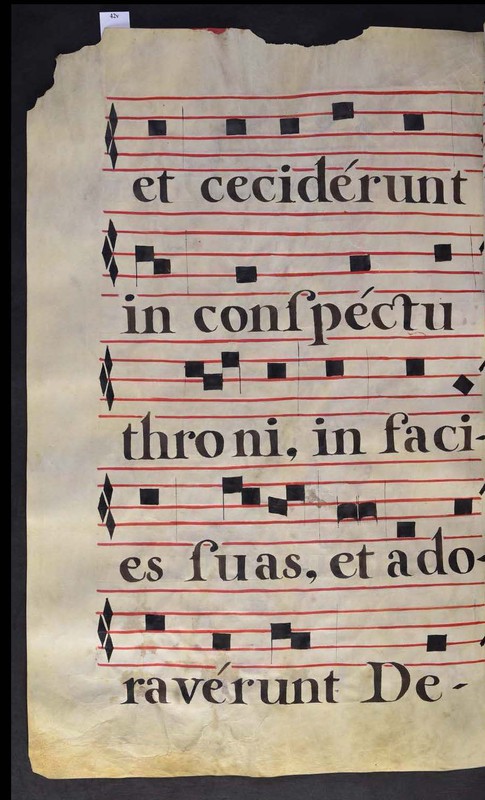 42v
et cecidérunt
in conſpéctu
throni, in faci-
es ſuas, et ado-
ravérunt De-